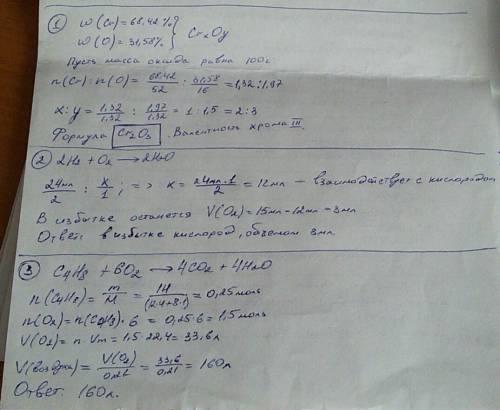 ① w(Cr) = 68,42% } CrxOy
w(O) = 31,58%
Пусть масса оксида равна 100г
n(Cr) : n(O) = 68.42/52 : 31,58/16 = 1,32 : 1,97
x : y = 1,32/1,32 : 1,97/1,32 = 1 : 1,5 = 2 : 3
Формула Cr2O3. Валентность хрома III.
② 2H2 + O2 → 2H2O
24мл/2 : x/1 ; => x = 24мл·1/2 = 12мл – взаимодействует с кислородом
В избытке останется V(O2) = 15мл – 12мл = 3мл
Ответ: в избытке кислород, объемом 3мл.
③ C4H8 + 6O2 → 4CO2 + 4H2O
n(C4H8) = m/M = 14/(12·4+8·1) = 0,25моль
n(O2) = n(C4H8) · 6 = 0,25·6 = 1,5моль
V(O2) = n · Vm = 1,5 · 22,4 = 33,6л
V(воздуха) = V(O2)/0,21 = 33,6/0,21 = 160л
Ответ: 160л.